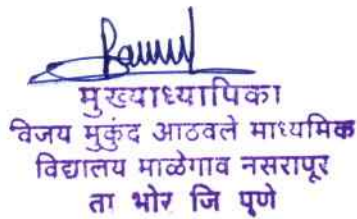 मुख्याध्यापिका
विजय मुकुंद आठवले माध्यमिक
विद्यालय माळेगाव नसरापूर
ता भोर जि पूणे